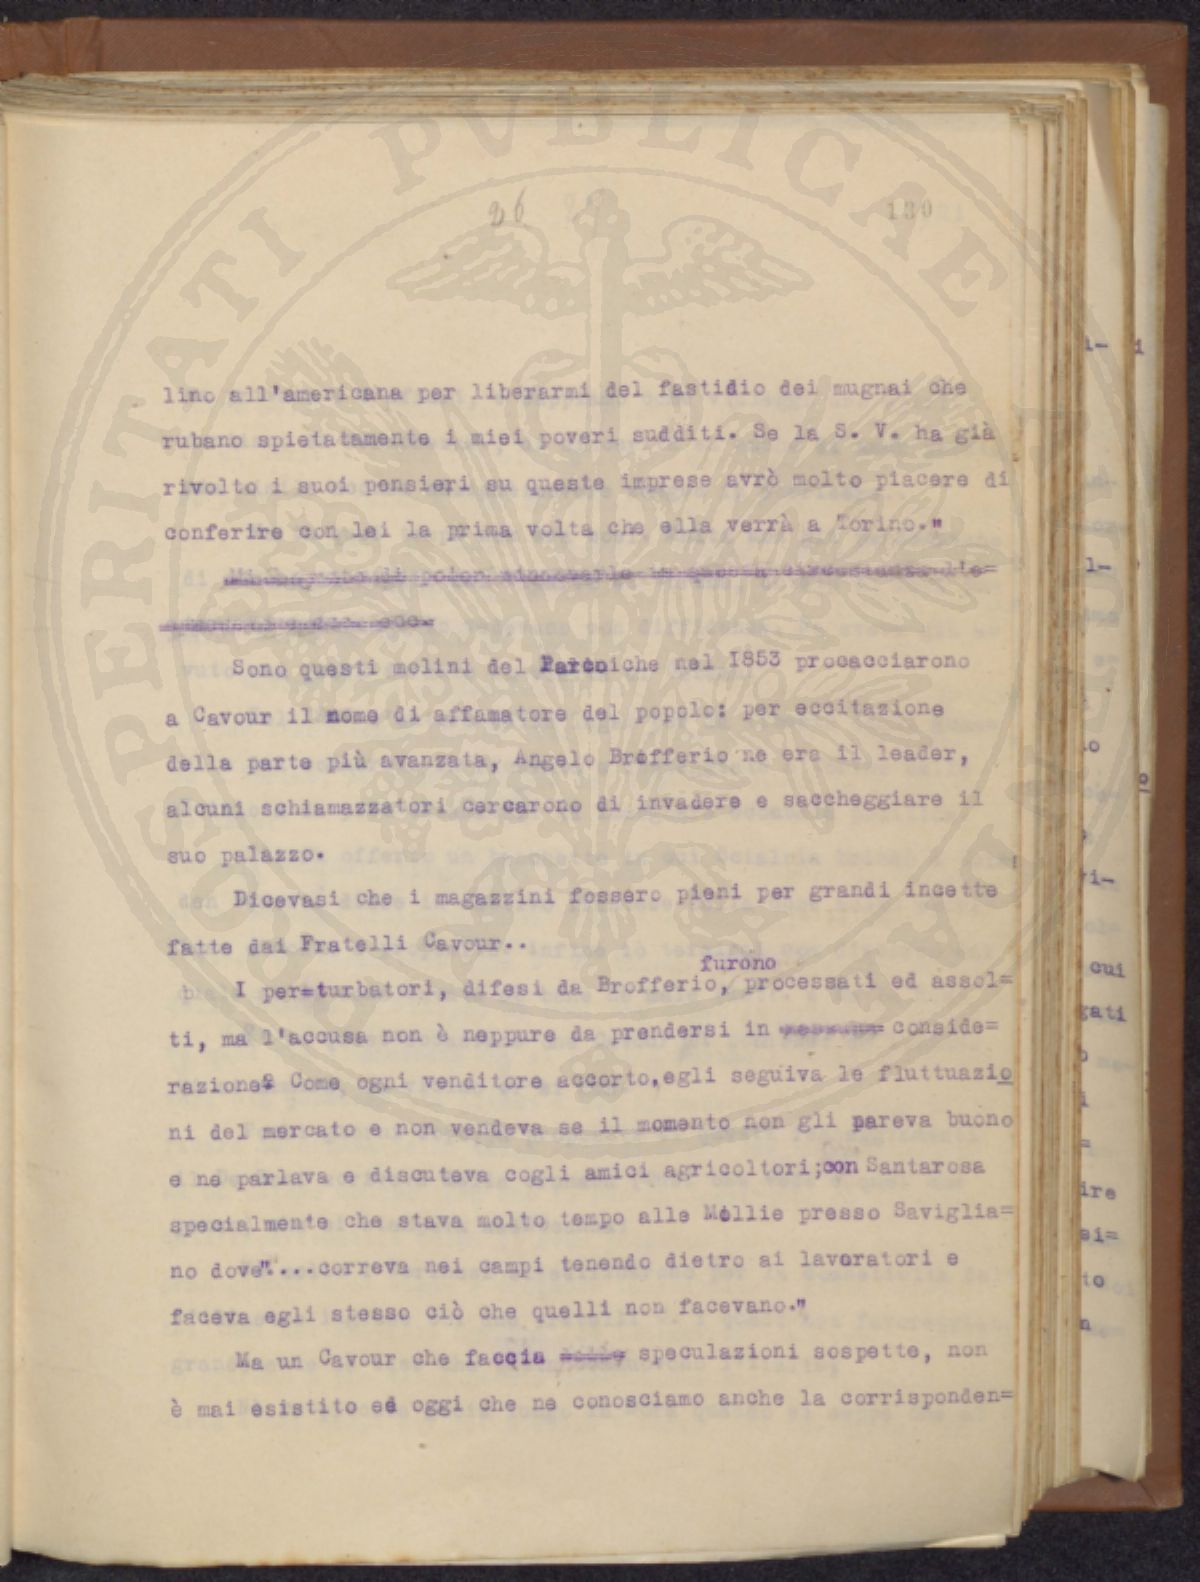 PROSPERITATI PVBLICAE
26
130
lino all'americana per liberarmi del fastidio dei mugnai che
rubano spietatamente i miei poveri sudditi. Se la S. V. ha già
rivolto i suoi pensieri su queste imprese avrò molto piacere di
conferire con lei la prima volta che ella verrà a Torino."
ecc.
Sono questi molini del Parco che nel 1853 procacciarono
a Cavour il nome di affamatore del popolo: per eccitazione
della parte più avanzata, Angelo Brofferio ne era il leader,
alcuni schiamazzatori cercarono di invadere e saccheggiare il
suo palazzo.
Dicevasi che i magazzini fossero pieni per grandi incette
fatte dai Fratelli Cavour..
furono
I per=turbatori, difesi da Brofferio, processati ed assol=
ti, ma l'accusa non è neppure da prendersi in conside=
razione. Come ogni venditore accorto, egli seguiva le fluttuazio
ni del mercato e non vendeva se il momento non gli pareva buono
e ne parlava e discuteva cogli amici agricoltori; con Santarosa
specialmente che stava molto tempo alle Mollie presso Saviglia=
no dove"....correva nei campi tenendo dietro ai lavoratori e
faceva egli stesso ciò che quelli non facevano."
Ma un Cavour che faccia speculazioni sospette, non
è mai esistito ed oggi che ne conosciamo anche la corrisponden=